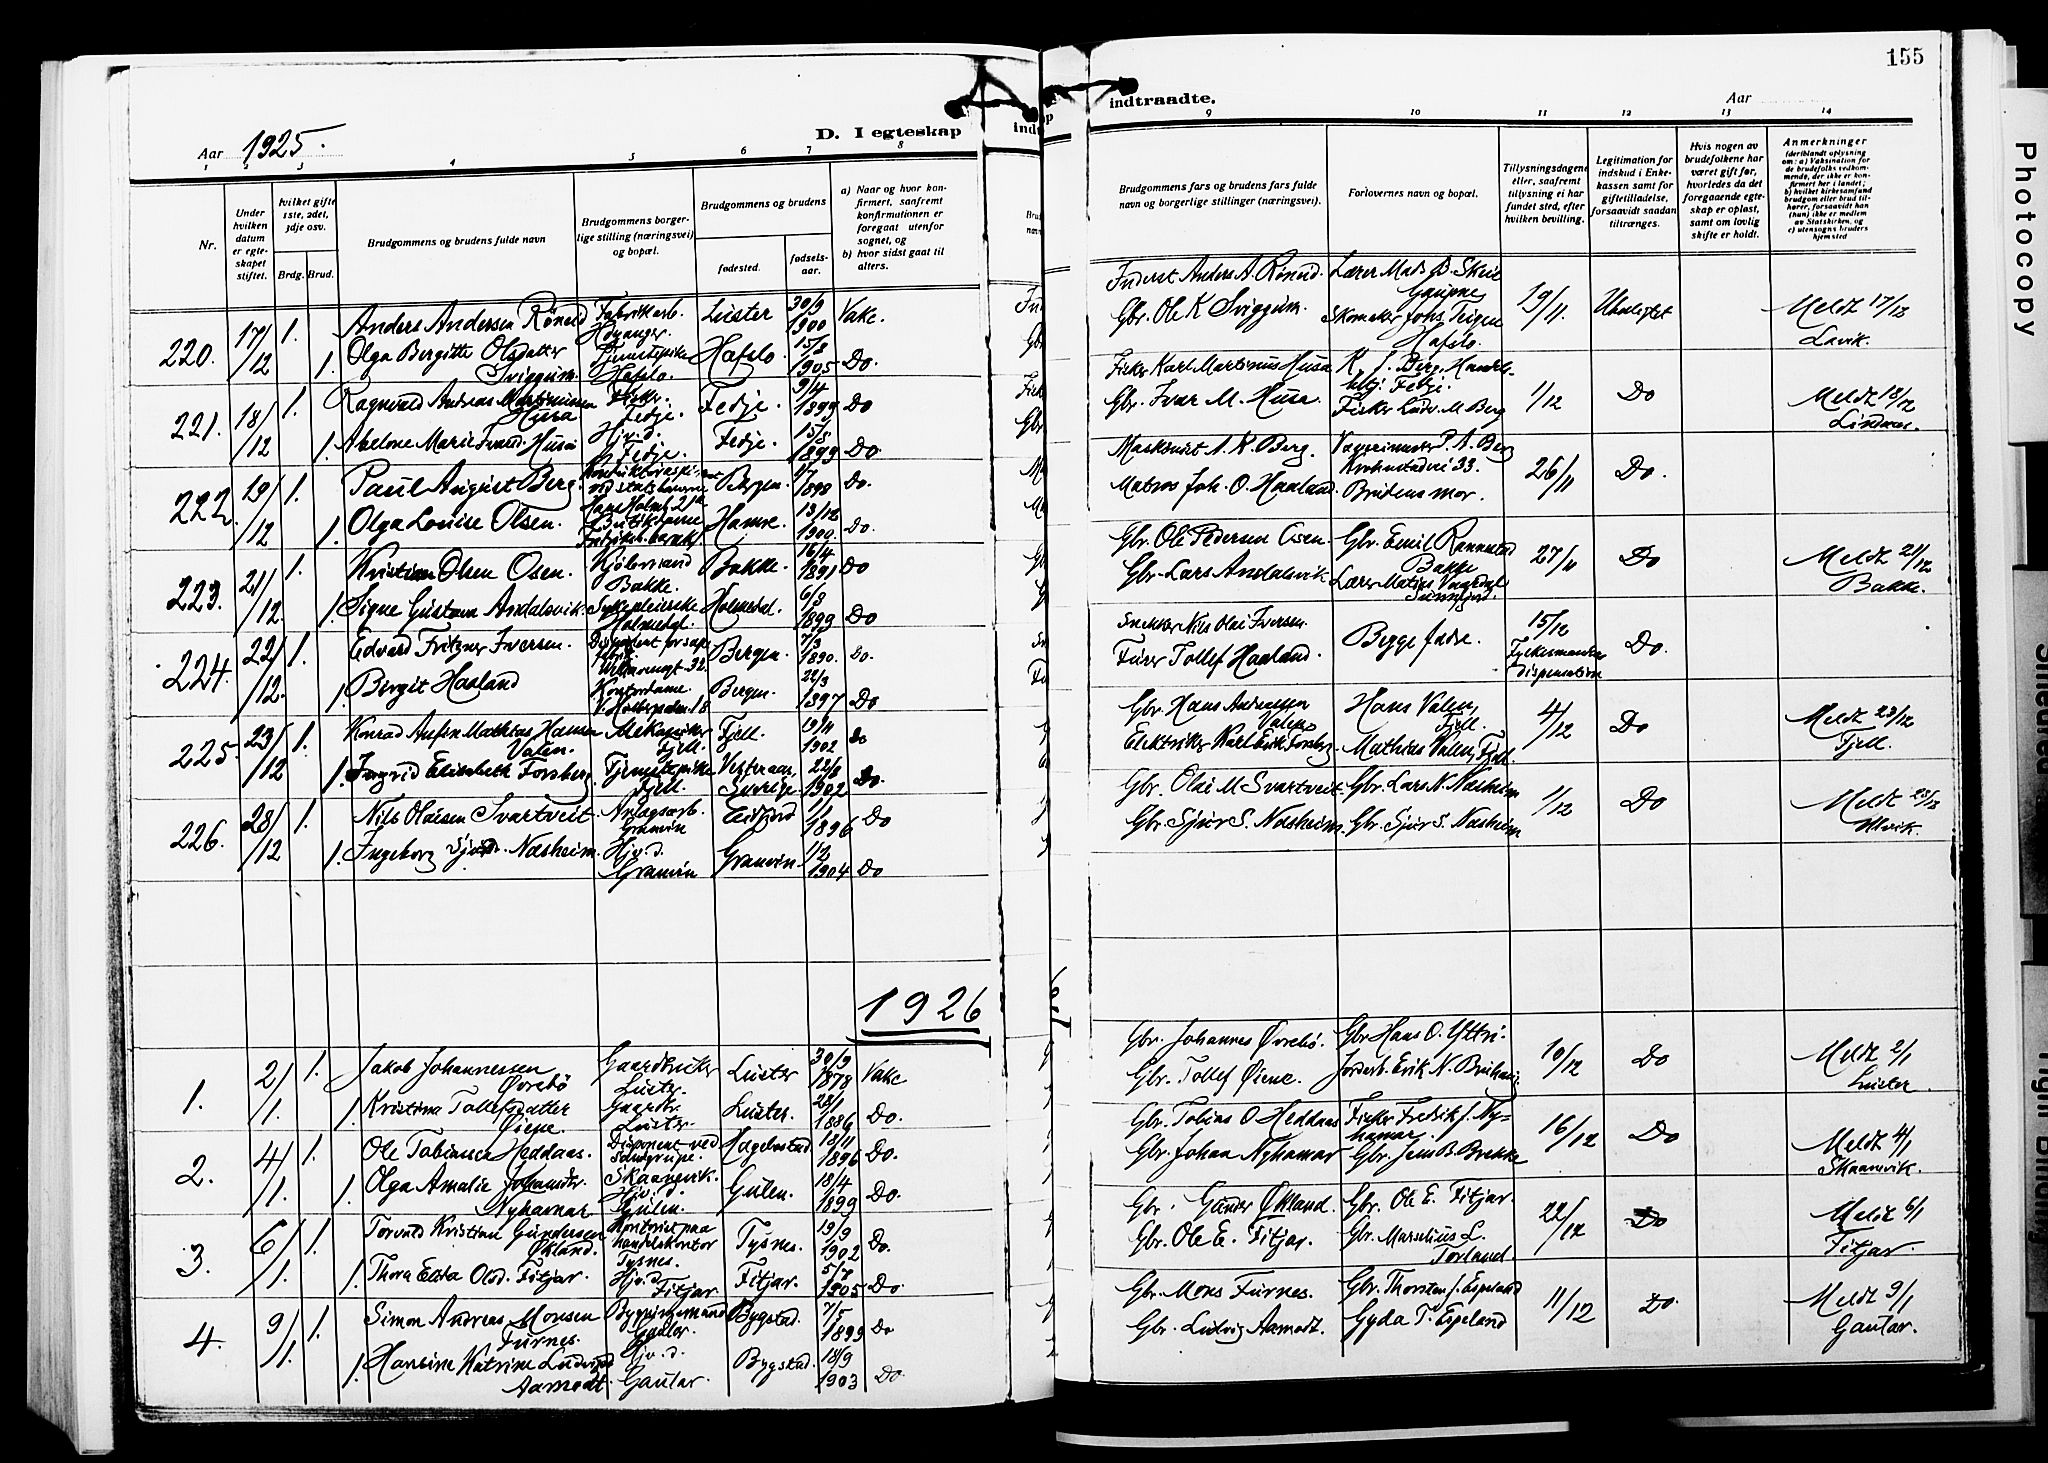 155
Aar 1925.
D. I egteskap
indtraadte.
Aar
1 2 3 4 5 6 7 8
9 10 11 12 13 14
Nr.
Under hvilken datum er egteskapet stiftet.
Hvilket gifte 1ste, 2det, 3dje osv.
Brdg. Brud.
Brudgommens og brudens fulde navn
Brudgommens borgerlige stilling (næringsvei) og bopæl.
Brudgommens og brudens
fødested.
fødselsaar.
a) Naar og hvor konfirmert, saafremt konfirmationen er foregaat utenfor sognet, og
b) hvor sidst gaat til alters.
Brudgommens fars og brudens fars fulde navn og borgerlige stillinger (næringsvei).
Forlovernes navn og bopæl.
Tillysningsdagene eller, saafremt tillysning ei har fundet sted, efter hvilken bevilling.
Legitimation for indskud i Enkekassen samt for giftetilladelse, forsaavidt saadan tiltrænges.
Hvis nogen av brudefolkene har været gift før, hvorledes da det foregaaende egteskap er opløst, samt om lovlig skifte er holdt.
Anmerkninger
(deriblandt oplysning om: a) Vaksination for de brudefolks vedkommende, der ikke er konfirmert her i landet; b) hvilket kirkesamfund brudgom eller brud tilhører, forsaavidt han (hun) ikke er medlem av Statskirken, og c) utensogns bruders hjemsted
220. 17/12 1. Anders Andersen Rönnd Fabrikarb. Høyanger. Luster 30/9 1900 Vake.
1. Olga Bergitte Olsdatter Sviggum. Tjenestepike Hafslo. Hafslo. 15/8 1905 Do.
Inderst Anders A. Rönnd. Lærer Mads B. Skeie Gaupne
Gbr. Ole K Sviggum. Skomaker Johs. Teigen Hafslo.
19/11. Meldt 17/12 Lavik.
221. 18/12 1. Ragnvald Andreas Martinussen Husa Fisker. Fedje. Fedje. 9/4 1899 Do
1. Abelone Marie Ivarsd. Husa Hjv. d. Fedje. Fedje. 15/8 1899 Do.
Fisker Karl Martinus Husa K. J. Berg, Handels Fedje.
Gbr. Ivar M. Husa. Fisker Ludv. M Berg
1/12 Do Meldt 18/12 Lindaas.
222. 19/12 1. Paul August Berg. Bergen. 1898 Do.
1. Olga Louise Olsen. Hamre. 13/12 1900. Do.
Maskinist A. K. Berg. P. A. Berg 33.
Matros Joh. O. Haaland. Brudens mor.
26/11 Do.
223. 21/12. 1. Kristian Olsen Osen. Bakke. Bakke. 16/4 1891 Do
1. Signe Gustava Andalsvik. Sykepleierske Holmedal. Holmedal. 6/9 1899 Do
Gbr. Ole Pedersen Osen. Gbr. Emil Bakke
Gbr. Lars Andalsvik Lærer Matias
27/11 Do Meldt 21/12 Bakke.
224. 22/12. 1. Edvard Fritzner Iversen. Bergen. 7/9 1890. Do.
1. Birgit Haaland Kontordame. 18 Bergen. 22/3 1897 Do
Snekker Nils Olai Iversen.
Fører Tollef Haaland. Begge fædre.
15/12 Fylkesmannens dispensation Do.
225. 23/12 1. Konrad Anfin Mathias Hansen Valen. Mekaniker Fjell. Fjell. 19/4 1902 Do
1. Ingrid Elisabeth Forsberg. Tjenestepike Fjell. Vesteraas, Sverige. 22/8 1902 Do.
Gbr. Hans Andreassen Valen Hans Valen, Fjell.
Elektriker Karl Erik Forsberg Mathias Valen, Fjell.
4/12 Do Meldt 23/12 Fjell.
226. 28/12 1. Nils Olaisen Svartveit. Anlægsarb. Granvin Eidfjord 1/1 1896 Do
1. Ingeborg Sjursd. Næsheim. Hjv. d. Granvin Granvin. 1904 Do
Gbr. Olai M Svartveit. Gbr. Lars N. Næsheim
Gbr. Sjur S. Næsheim. Gbr. Sjur S. Næsheim
1/12 Do Meldt Ulvik.
1926
1. 2/1. 1. Jakob Johannessen Øvrebö Gaardbruker Luster. Luster 30/9 1878 Vake
1. Kristina Tollefsdatter Øiene. Gaardbr. Luster. Luster. 28/1 1886 Do.
Gbr. Johannes Øvrebö. Gbr. Hans O. Yttri.
Gbr. Tollef Øiene. Jordarb. Erik N.
10/12 Do Meldt 2/1 Luster.
2. 4/1. 1. Ole Tobiassen Heddaas. Disponent ved Skaanevik. Hægebostad 18/11 1896 Do.
1. Olga Amalie Johansdtr. Nyhamar Hjv. d. Gulen. Gulen. 18/4 1899 Do
Gbr. Tobias O Heddaas Fisker Fredrik J. Nyhamar
Gbr. Johan Nyhamar Gbr. Jens B. Brekke
16/12 Do Meldt 4/1 Skaanevik.
3. 6/1. 1. Torvald Kristian Gundersen Økland. Kontorist paa handelskontor Tysnes. Tysnes. 19/9 1902 Do.
1. Thora Edita Olsd. Fitjar. Hjv. d. Fitjar Fitjar. 5/7 1905 Do.
Gbr. Gunder Økland. Gbr. Ole E. Fitjar.
Gbr. Ole E. Fitjar. Gbr. Marselius L. Torland.
22/12 Do Meldt 6/1 Fitjar.
4. 9/1. 1. Simon Andreas Monsen Furnes. Bygningsmand Gaular. Bygstad. 7/5 1899 Do
1. Hansine Katrine Ludvigsd. Aamodt. Hjv. d. Gaular. Bygstad. 18/9 1903 Do.
Gbr. Mons Furnes. Gbr. Thorsten J. Espeland
Gbr. Ludvig Aamodt. Gyda T. Espeland
11/12 Do. Meldt 9/1 Gaular.
Photocopy
Tight Binding